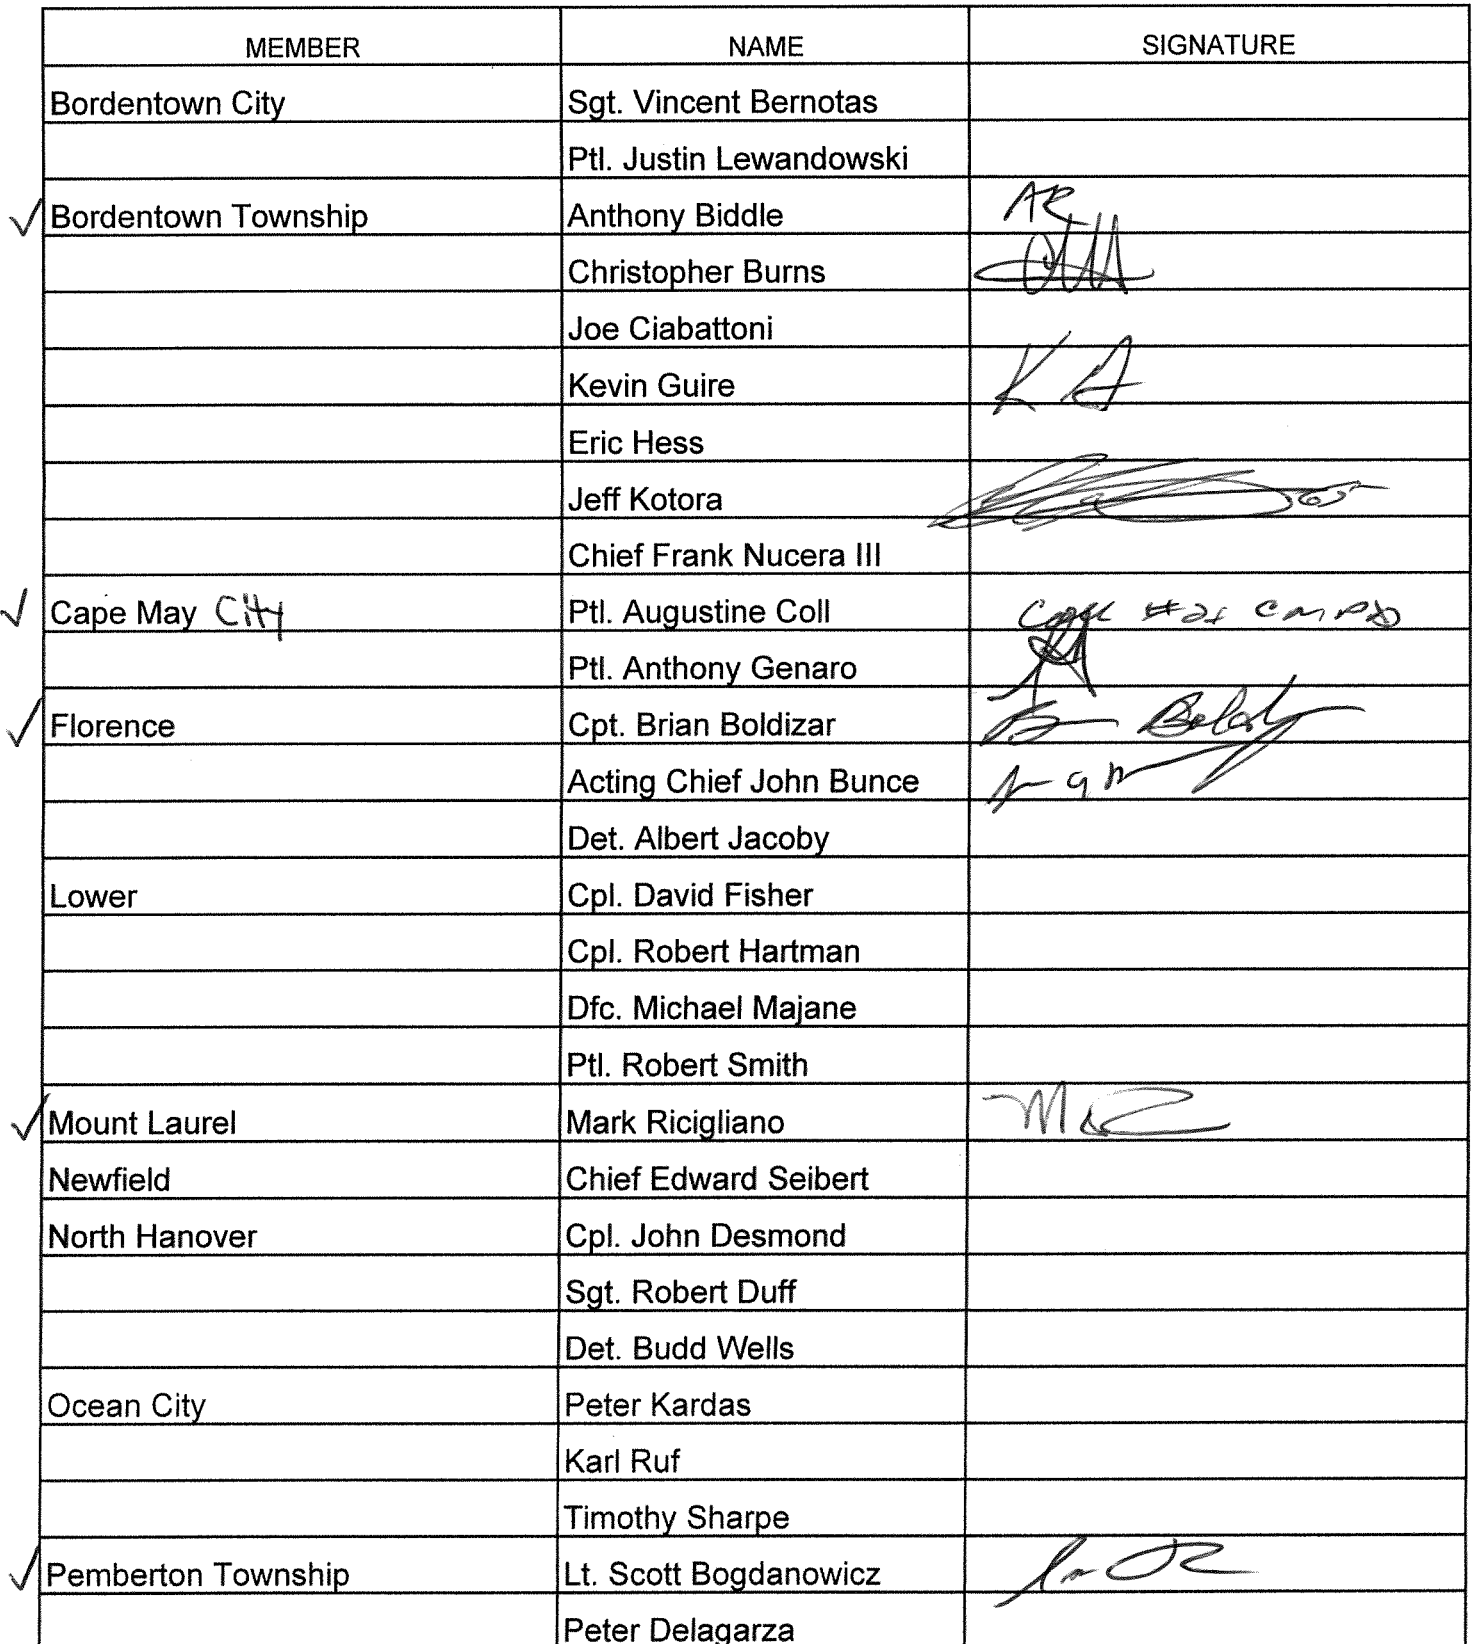 MEMBER NAME SIGNATURE
Bordentown City Sgt. Vincent Bernotas
Ptl. Justin Lewandowski
✓ Bordentown Township Anthony Biddle
Christopher Burns
Joe Ciabattoni
Kevin Guire
Eric Hess
Jeff Kotora
Chief Frank Nucera III
✓ Cape May City Ptl. Augustine Coll Coll #21 CMPD
Ptl. Anthony Genaro
✓ Florence Cpt. Brian Boldizar
Acting Chief John Bunce
Det. Albert Jacoby
Lower Cpl. David Fisher
Cpl. Robert Hartman
Dfc. Michael Majane
Ptl. Robert Smith
✓ Mount Laurel Mark Ricigliano
Newfield Chief Edward Seibert
North Hanover Cpl. John Desmond
Sgt. Robert Duff
Det. Budd Wells
Ocean City Peter Kardas
Karl Ruf
Timothy Sharpe
✓ Pemberton Township Lt. Scott Bogdanowicz
Peter Delagarza